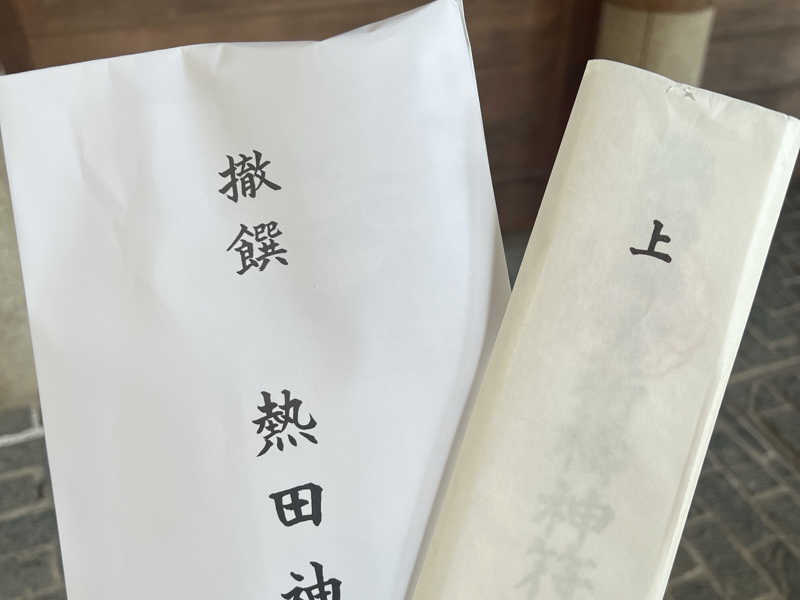 撤饌
熱田神
上
神符